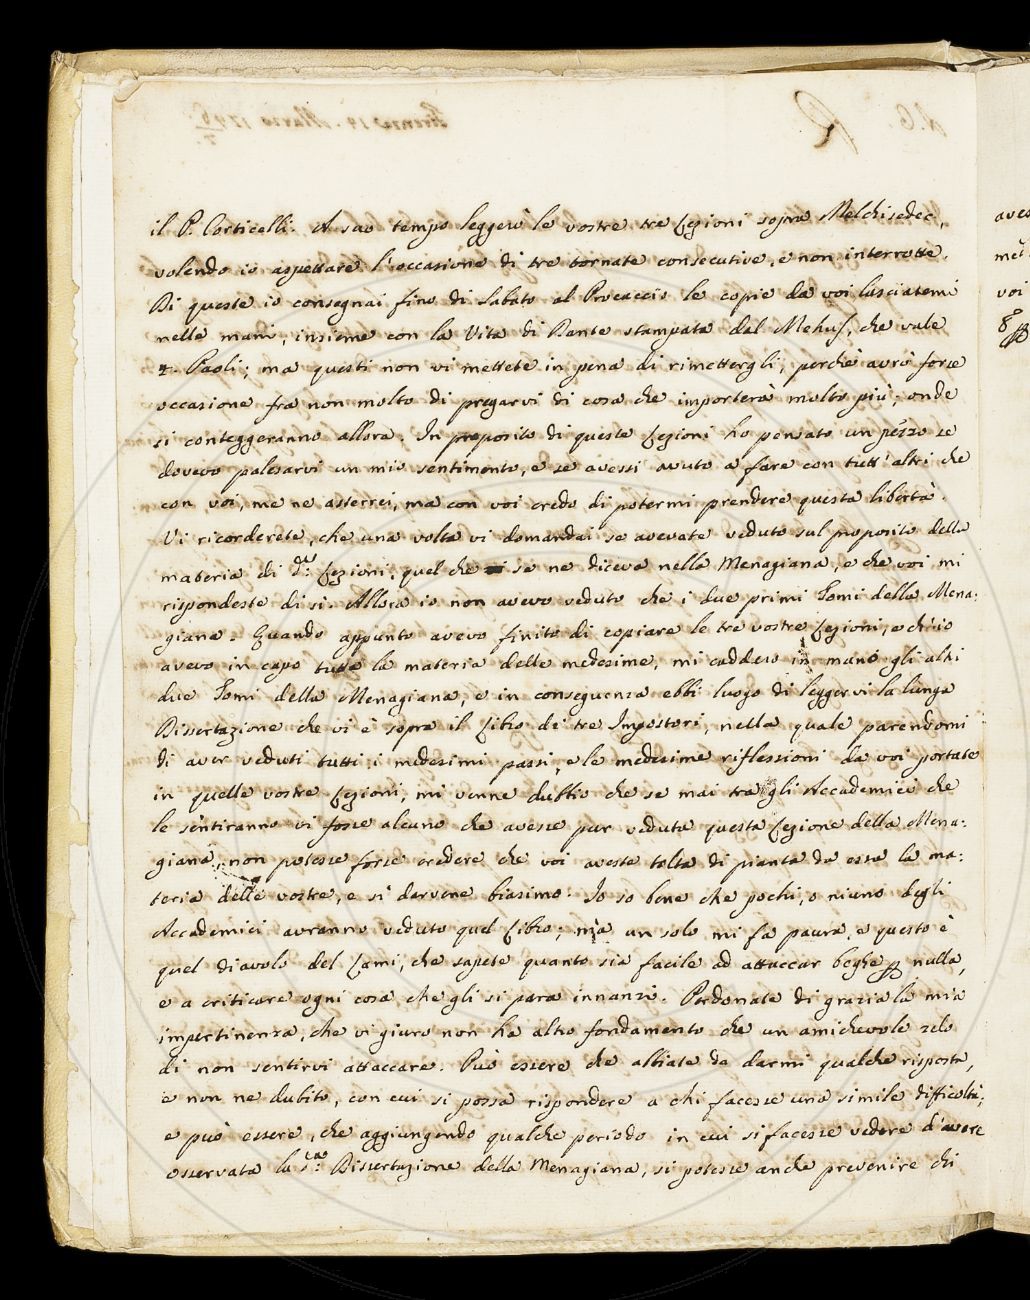 il P. Corticelli. A suo tempo leggerò le vostre tre Lezioni sopra Melchisedec,
volendo io aspettare l'occasione di tre tornate consecutive, e non interrotte.
Di queste io consegnai fino di Sabato al Procaccio le copie da voi lasciatemi
nelle mani, insieme con la Vita di Dante stampata dal Mehus, che vale
Paoli; ma questi non vi mettete in pena di rimettergli, perchè avrò forse
occasione fra non molto di pregarvi di cosa che importerà molto più; onde
si conteggeranno allora. In proposito di queste Lezioni ho pensato un pezzo se
dovevo palesarvi un mio sentimento, e se avessi avuto a fare con tutt'altri che
con voi, me ne asterrei, ma con voi credo di potermi prendere questa libertà.
Vi ricorderete, che una volta vi domandai se avevate veduto sul proposito della
materia di d.e Lezioni, quel che se ne diceva nella Menagiana, e che voi mi
rispondeste di sì. Allora io non avevo veduto che i due primi Tomi della Mena:
giana. Quando appunto avevo finito di copiare le tre vostre Lezioni, e ch'io
avevo in capo tutta la materia delle medesime, mi caddero in mano gli altri
due Tomi della Menagiana, e in conseguenza ebbi luogo di leggervi la lunga
Dissertazione che vi è sopra il Libro dei tre Impostori, nella quale parendomi
di aver veduti tutti i medesimi passi, e le medesime riflessioni da voi portate
in quelle vostre Lezioni, mi venne dubbio che se mai tra gli Accademici che
le sentiranno vi fosse alcuno che avesse pur veduta questa Lezione della Mena:
giana, non potesse forse credere che voi aveste tolta di pianta da essa la ma:
teria delle vostre, e sì darvene biasimo. Io so bene che pochi, o niuno degli
Accademici avranno veduto quel Libro; ma un solo mi fa paura, e questo è
quel diavolo del Lami, che sapete quanto sia facile ad attaccar beghe p nulla,
e a criticare ogni cosa che gli si para innanzi. Perdonate di grazia la mia
impertinenza, che vi giuro non ha altro fondamento che un amichevole zelo
di non sentirvi attaccare. Può essere che abbiate da darmi qualche risposta,
e non ne dubito, con cui si possa rispondere a chi facesse una simile difficoltà;
e può essere, che aggiungendo qualche periodo in cui si facesse vedere d'avere
osservata la s.a Dissertazione della Menagiana, si potesse anche prevenire chi